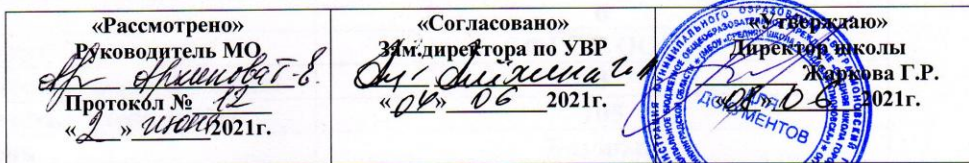 «Рассмотрено»
Руководитель МО
Протокол № 12
«2» июня 2021г.
«Согласовано»
Зам.директора по УВР
«04» 06 2021г.
«Утверждаю»
Директор школы
Жаркова Г.Р.
06 2021г.
ДЛЯ
ДОКУМЕНТОВ